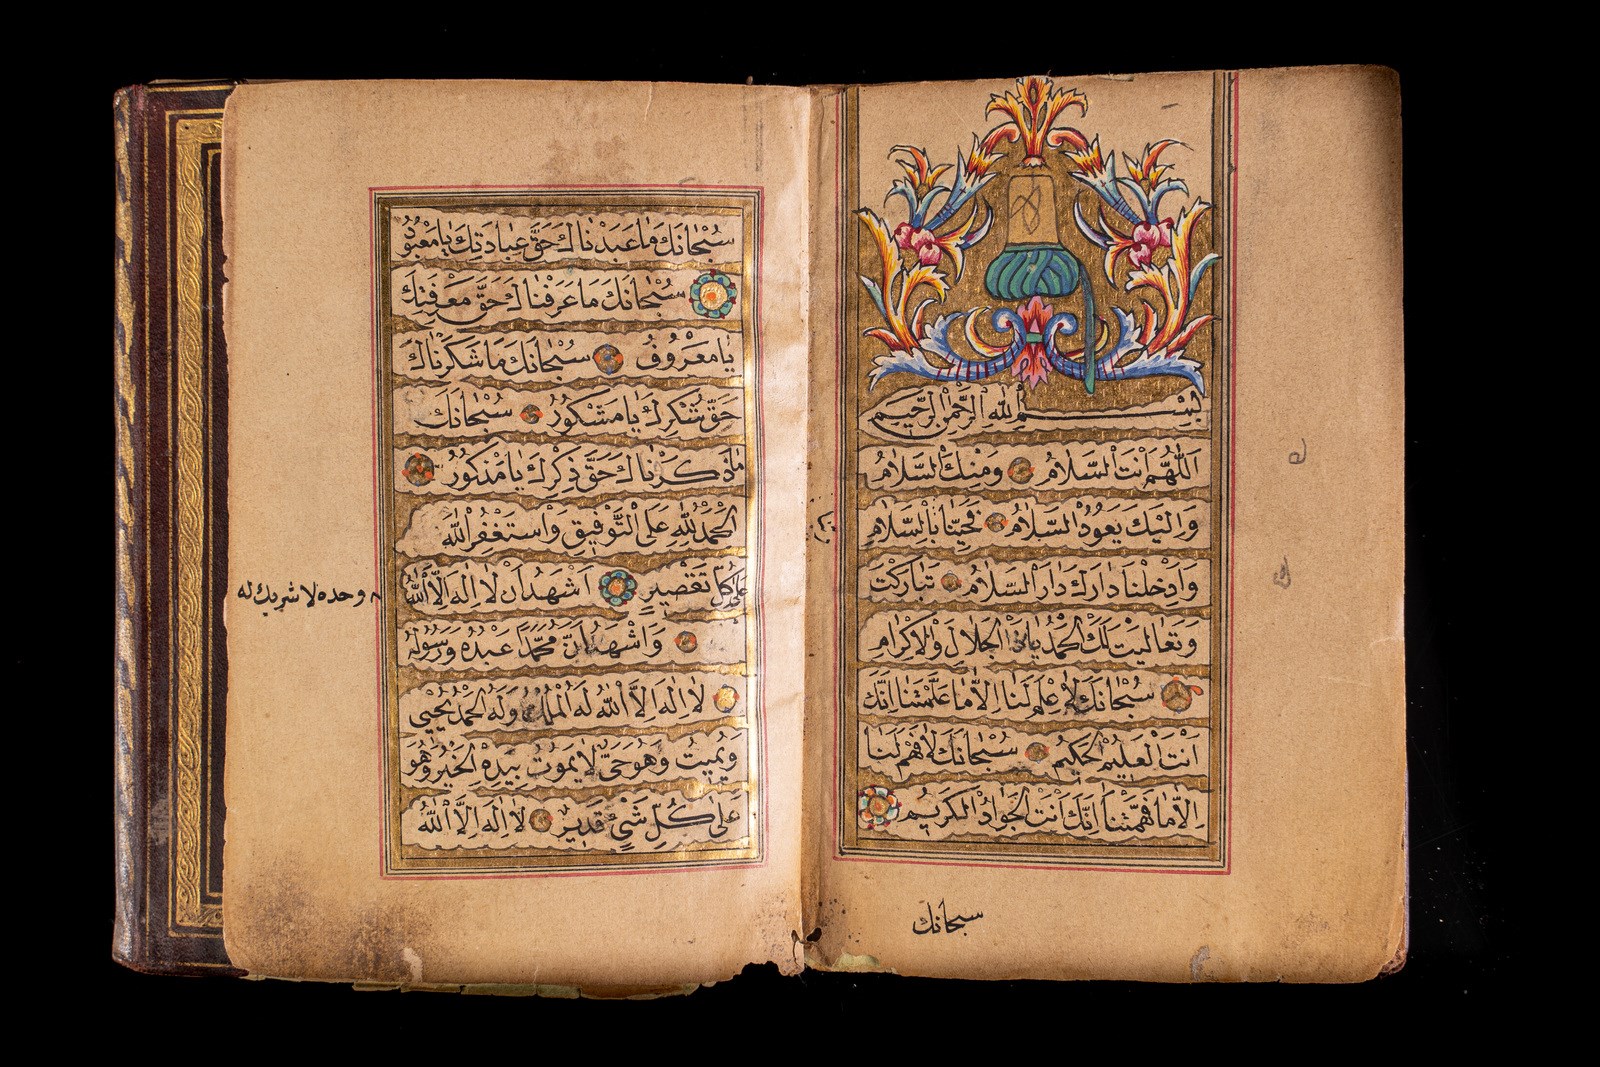 بِسْمِ اللهِ الرَّحْمٰنِ الرَّحِيمِ
اَللّٰهُمَّ اَنْتَ السَّلَامُ وَمِنْكَ السَّلَامُ
وَاِلَيْكَ يَعُودُ السَّلَامُ فَحَيِّنَا بِالسَّلَامِ
وَادْخِلْنَا دَارَكَ دَارَ السَّلَامُ تَبَارَكْتَ
وَتَعَالَيْتَ لَكَ الْحَمْدُ يَاذَا الْجَلَالِ وَالْاِكْرَامِ
سُبْحَانَكَ لَا عِلْمَ لَنَا اِلَّا مَا عَلَّمْتَنَا اِنَّكَ
اَنْتَ الْعَلِيمُ الْحَكِيمُ سُبْحَانَكَ لَا فَهْمَ لَنَا
اِلَّا مَا فَهَّمْتَنَا اِنَّكَ اَنْتَ الْجَوَادُ الْكَرِيمُ
سبحانك
سُبْحَانَكَ مَا عَبَدْنَاكَ حَقَّ عِبَادَتِكَ يَا مَعْبُودُ
سُبْحَانَكَ مَا عَرَفْنَاكَ حَقَّ مَعْرِفَتِكَ
يَا مَعْرُوفُ سُبْحَانَكَ مَا شَكَرْنَاكَ
حَقَّ شُكْرِكَ يَا مَشْكُورُ سُبْحَانَكَ
مَا ذَكَرْنَاكَ حَقَّ ذِكْرِكَ يَا مَذْكُورُ
اَلْحَمْدُ لِلّٰهِ عَلَى التَّوْفِيقِ وَاسْتَغْفِرُ اللهَ
عَلَى كُلِّ تَقْصِيرٍ اَشْهَدُ اَنْ لَا اِلٰهَ اِلَّا اللهُ
وحده لا شريك له
وَاَشْهَدُ اَنَّ مُحَمَّدًا عَبْدُهُ وَرَسُولُهُ
لَا اِلٰهَ اِلَّا اللهُ لَهُ الْمُلْكُ وَلَهُ الْحَمْدُ يُحْيِي
وَيُمِيتُ وَهُوَ حَيٌّ لَا يَمُوتُ بِيَدِهِ الْخَيْرُ وَهُوَ
عَلَى كُلِّ شَيْءٍ قَدِيرٌ لَا اِلٰهَ اِلَّا اللهُ